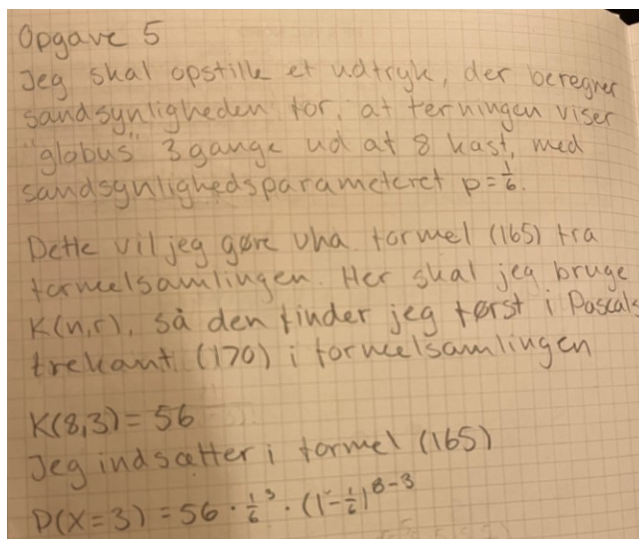 Opgave 5
Jeg skal opstille et udtryk, der beregner
sandsynligheden for, at terningen viser
"globus" 3 gange ud af 8 kast, med
sandsynlighedsparameteret p=1/6.
Dette vil jeg gøre vha. formel (165) fra
formelsamlingen. Her skal jeg bruge
K(n,r), så den finder jeg først i Pascals
trekant (170) i formelsamlingen
K(8,3)=56
Jeg indsætter i formel (165)
P(X=3) = 56 · 1/6³ · (1-1/6)⁸⁻³